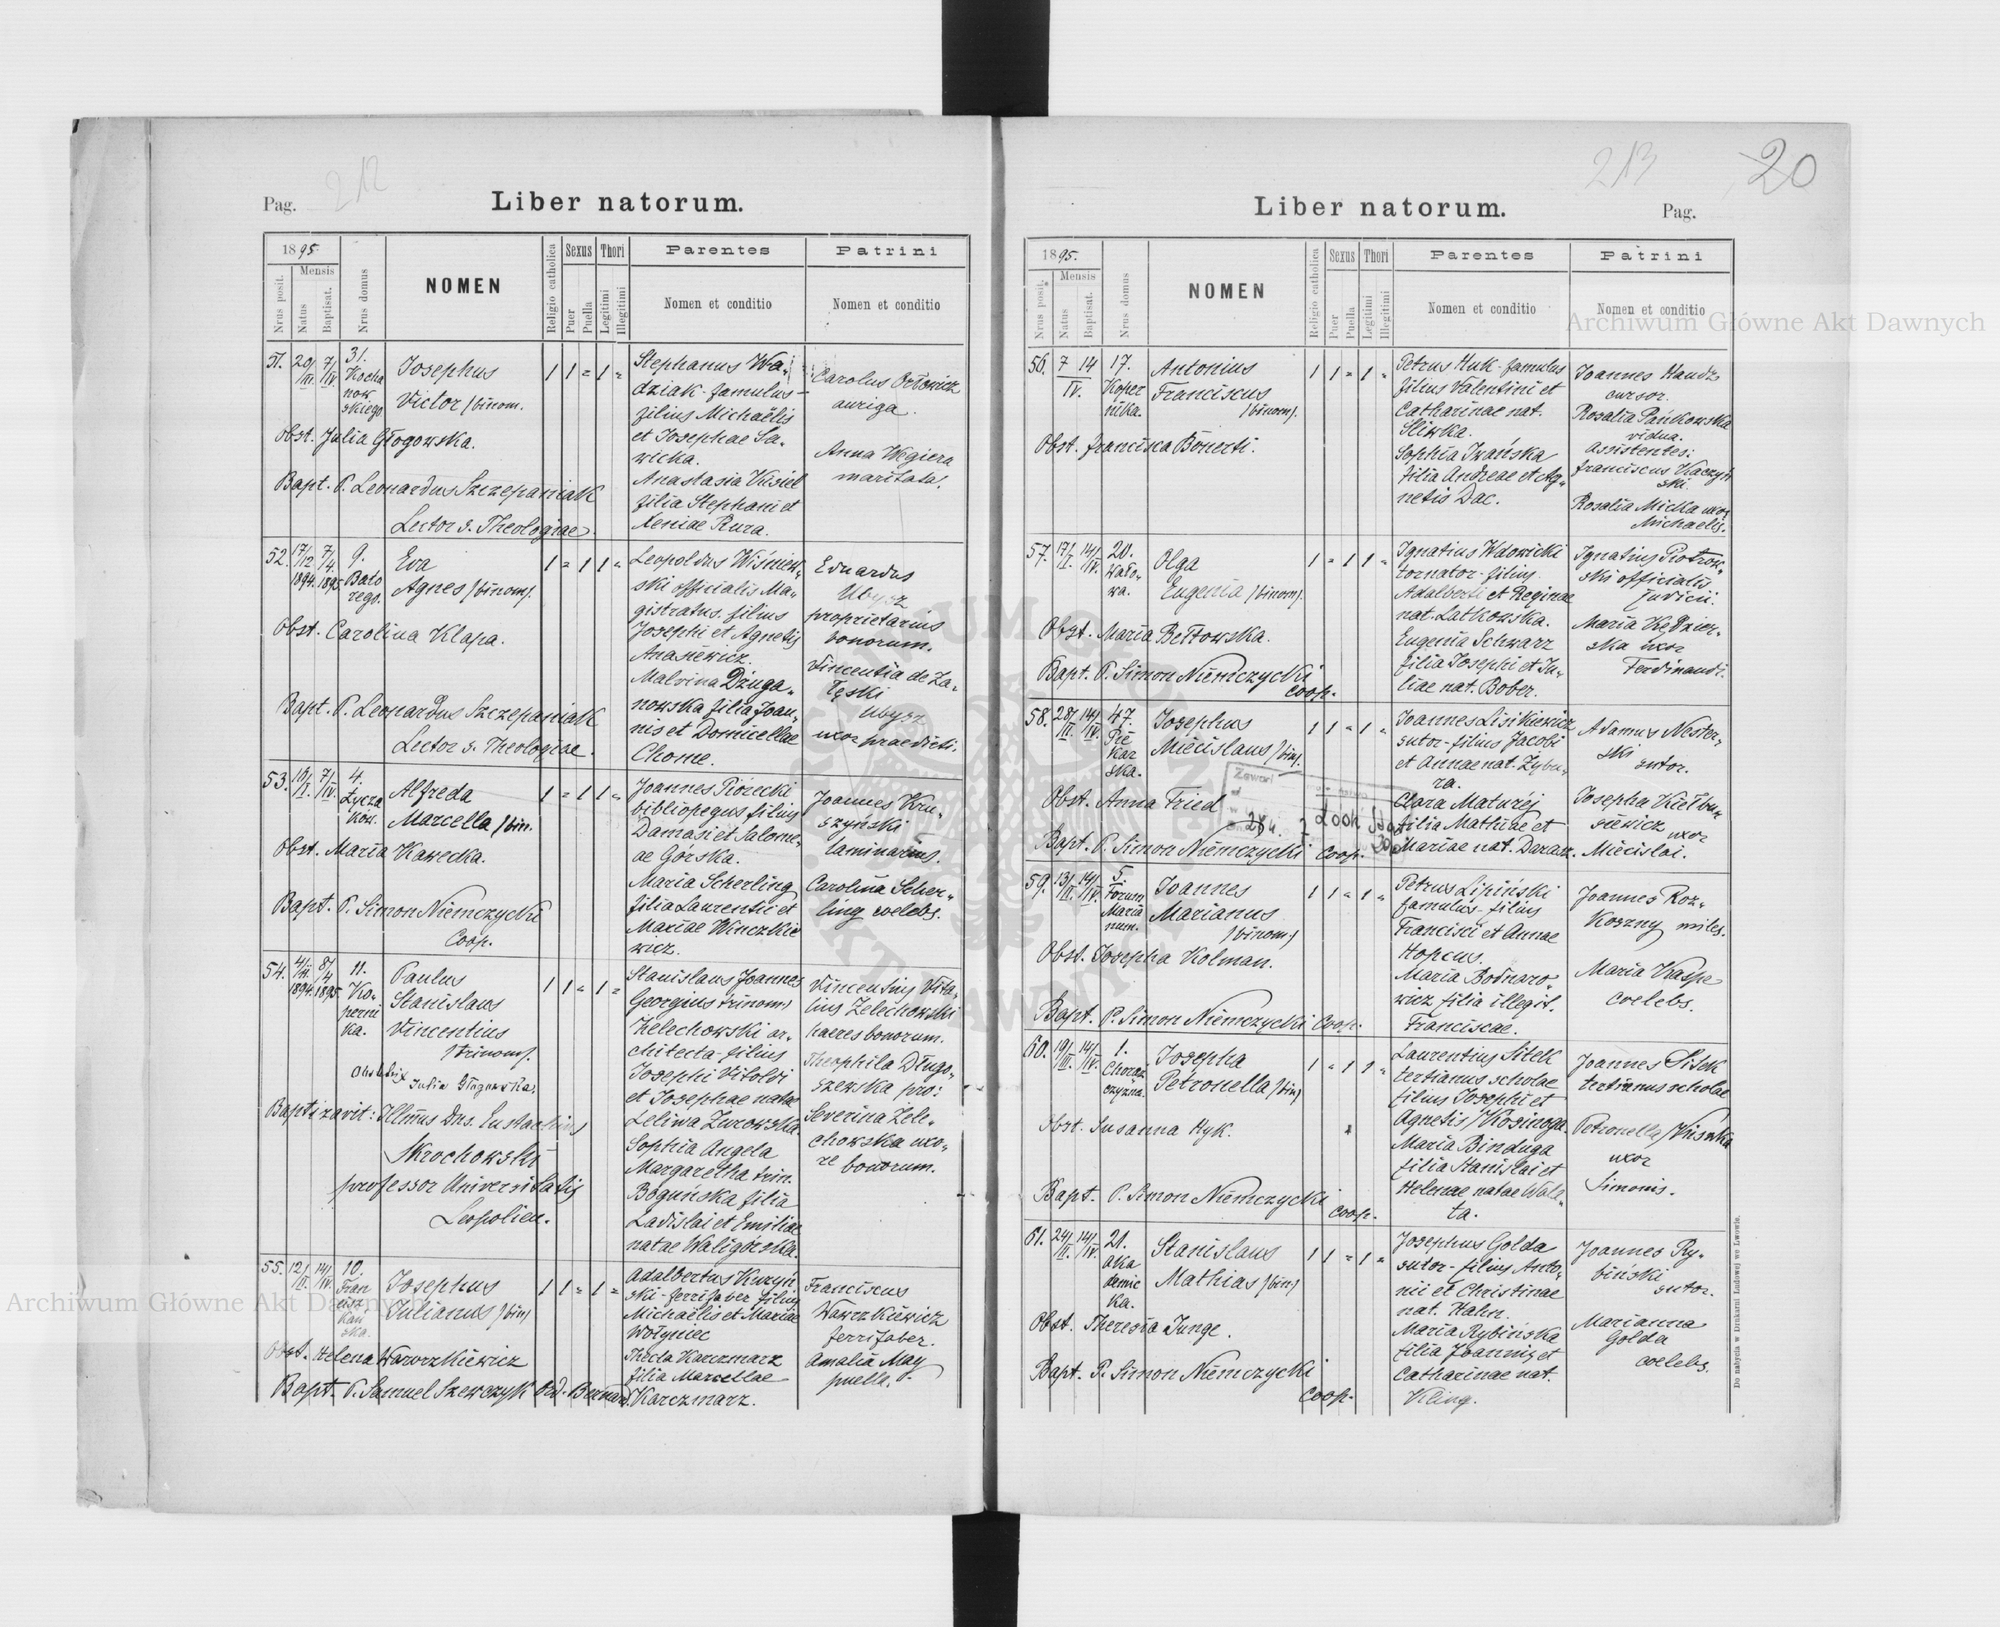 212
Pag.
Liber natorum.
1895.
Nrus posit.
Mensis
Natus
Baptisat.
Nrus domus
NOMEN
Religio catholica
Sexus
Puer
Puella
Thori
Legitimi
Illegitimi
Parentes
Nomen et conditio
Patrini
Nomen et conditio
51. 20/III. 7/IV. 31.
Kocha
now
skiego
Josephus
Victor /binom.
1 1 = 1 =
Obst. Julia Głogowska.
Bapt. P. Leonardus Szczepaniak
Lector s. Theologiae.
Stephanus Wa-
dziak famulus
filius Michaëlis
et Josephae Sa-
wicka.
Anastasia Kisiel
filia Stephani et
Xeniae Rura.
Carolus Orłowicz
auriga.
Anna Węgiera
maritata.
52. 17/12 1894. 7/4. 1895. 9.
Bato
rego.
Eva
Agnes /binom/.
1 = 1 1 =
Obst. Carolina Klapa.
Bapt. P. Leonardus Szczepaniak
Lector s. Theologiae.
Leopoldus Wiśniew-
ski officialis Ma-
gistratus. filius
Josephi et Agnetis
Anasiewicz.
Malvina Dżuga-
nowska filia Joan-
nis et Domicellae
Chome.
Eduardus
Ubysz
proprietarius
bonorum.
Vincentia de Za-
łęski
Ubysz
uxor praedicti.
53. 10/I. 7/IV. 4.
Łycza
kow.
Alfreda
Marcella /bin.
1 = 1 1 =
Obst. Maria Kawecka.
Bapt. P. Simon Niemczycki
Coop.
Joannes Piórecki
bibliopegus filius
Damasi et Salome-
ae Górska.
Maria Scherling
filia Laurentii et
Mariae Winczkie
wicz.
Joannes Kru-
szyński
laminarius.
Carolina Scher-
ling coelebs.
54. 1894. 8/4 1895. 11.
Ko-
perni
ka.
Paulus
Stanislaus
Vincentius
/trinom/.
1 1 = 1 =
Obstetrix Julia Głogowska.
Baptizavit: Illmus Dns. Eustachius
Skrochowski
professor Universitatis
Leopolien.
Stanislaus Joannes
Georgius trinom)
Zelechowski ar-
chitecta filius
Josephi Vitoldi
et Josephae natae
Leliwa Zurowska
Sophia Angela
Margaretha trin.
Boguńska filia
Ladislai et Emiliae
natae Waligórska.
Vincentius Vita-
lius Zelechowski
haeres bonorum.
Theophila Długo-
szewska pro:
Severina Zele-
chowska uxo-
re bonorum.
55. 12/II. 14/IV. 10.
Fran
cisz
kań
ska.
Josephus
Julianus /bin/
1 1 = 1 =
Obst. Helena Wawrzkiewicz
Bapt. P. Samuel Szewczyk Ord. Bernard.
Adalbertus Kuryń
ski - ferrifaber filius
Michaëlis et Mariae
Wołyniec
Thecla Karczmarz
filia Marcellae
Karczmarz.
Franciscus
Wawrzkiewicz
ferrifaber.
Amalia May
puella.
213
20
Liber natorum.
Pag.
1895.
Nrus posit.
Mensis
Natus
Baptisat.
Nrus domus
NOMEN
Religio catholica
Sexus
Puer
Puella
Thori
Legitimi
Illegitimi
Parentes
Nomen et conditio
Patrini
Nomen et conditio
56. 7 14 IV. 17.
Koper
nika.
Antonius
Franciscus
/binom/.
1 1 = 1 =
Obst. Francisca Bönerti.
Petrus Huk - famulus
filius Valentini et
Catharinae nat.
Śliwka.
Sophia Iwańska
filia Andreae et Ag-
netis Dac.
Joannes Handz
cursor.
Rosalia Pańkowska
vidua.
Assistentes:
Franciscus Kaczyń
ski.
Rosalia Micka uxor
Michaelis.
57. 17/I. 14/IV. 20.
Wało-
wa.
Olga
Eugenia /binom/.
1 = 1 1 =
Obst. Maria Bełtowska.
Bapt. P. Simon Niemczycki
coop.
Ignatius Wdowicki
tornator - filius
Adalberti et Reginae
nat. Latkowska.
Eugenia Schwarz
filia Josephi et Ju-
liae nat. Bober.
Ignatius Piotrow-
ski officialis
judicii.
Maria Kędzier-
ska uxor
Ferdinandi.
58. 28/II. 14/IV. 47.
Pie
kar
ska.
Josephus
Miecislaus /bin/.
1 1 = 1 =
Obst. Anna Fried
Bapt. P. Simon Niemczycki Coop.
Zawarł
Joannes Lisikiewicz
sutor - filius Jacobi
et Annae nat. Zybu-
ra.
Clara Maturej
filia Mathiae et
Mariae nat. Darasz.
Adamus Nester-
ski
sutor.
Josepha Kiełbu
siewicz uxor
Miecislai.
59. 13/II. 14/IV. 5.
Forum
Maria
num.
Joannes
Marianus
/binom/
1 1 = 1 =
Obst. Josepha Kolman.
Bapt. P. Simon Niemczycki Coop.
Petrus Lipiński
famulus - filius
Francisci et Annae
Hopcus.
Maria Bodnaro-
wicz filia illegit.
Franciscae.
Joannes Roz-
koszny miles.
Maria Kaspe
coelebs.
60. 19/III. 14/IV. 1.
Chorąż
czyzna.
Josepha
Petronella /bin/
1 = 1 1 =
Obst. Susanna Hyk.
Bapt. P. Simon Niemczycki
coop.
Laurentius Sitek
tertianus scholae
filius Josephi et
Agnetis Kosinoga.
Maria Binduga
filia Stanislai et
Helenae natae Wale-
ta.
Joannes Sitek
tertianus scholae
Petronella
uxor
Simonis.
61. 24/II. 14/IV. 21.
Aka
demic
ka.
Stanislaus
Mathias /bin/
1 1 = 1 =
Obst. Theresia Junge.
Bapt. P. Simon Niemczycki
coop.
Josephus Golda
sutor - filius Anto-
nii et Christinae
nat. Hahn.
Maria Rybińska
filia Joannis et
Catharinae nat.
Kling.
Joannes Ry-
biński
sutor.
Marianna
Golda
coelebs.
Do nabycia w Drukarni Ludowej we Lwowie.
Archiwum Główne Akt Dawnych
Archiwum Główne Akt Dawnych